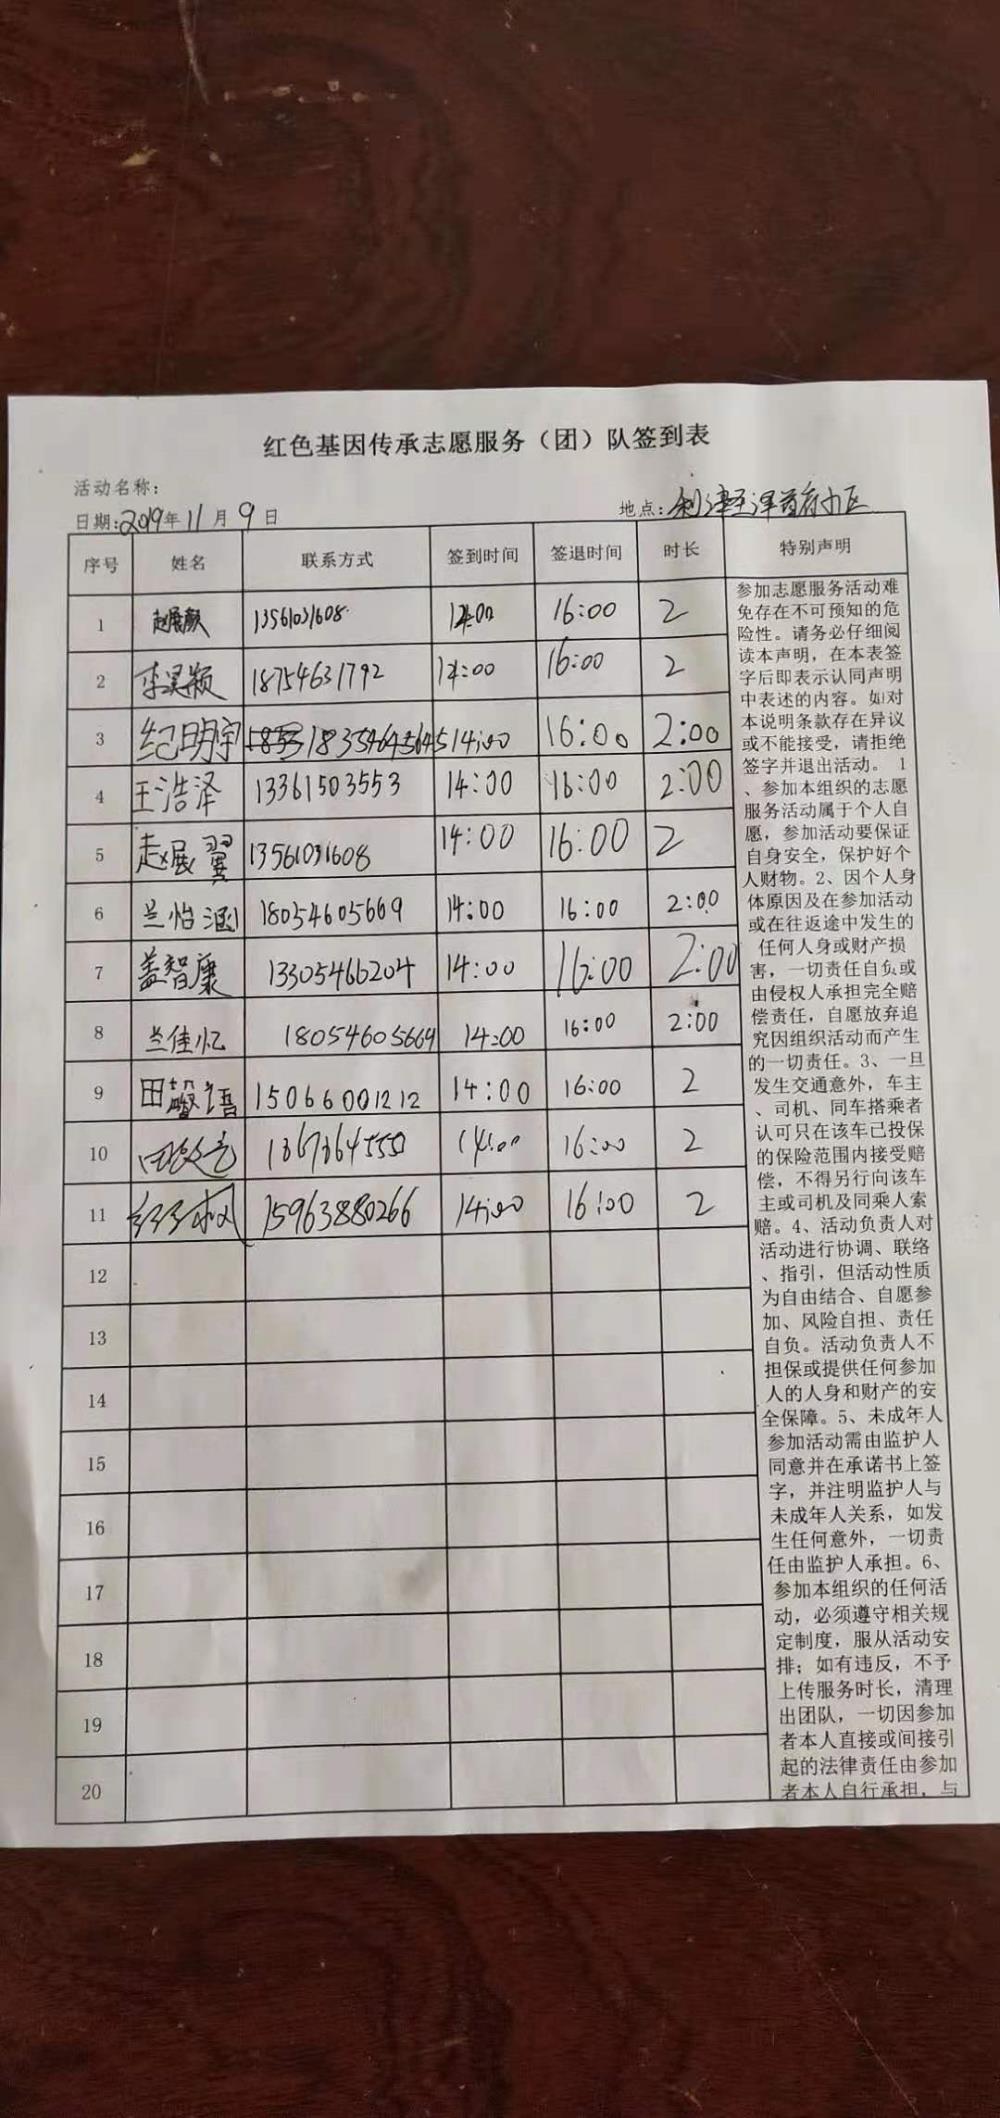 红色基因传承志愿服务（团）队签到表
活动名称：
日期:2019年11月9日 地点:利津
序号 姓名 联系方式 签到时间 签退时间 时长 特别声明
1 赵展颜 13561031608 14:00 16:00 2
2 李昊颖 18754631792 14:00 16:00 2
3 纪明宇 14:00 16:00 2:00
4 王浩泽 13361503553 14:00 16:00 2:00
5 赵展翼 13561031608 14:00 16:00 2
6 兰怡涵 18054605669 14:00 16:00 2:00
7 盖智康 13305466204 14:00 16:00 2:00
8 兰佳忆 18054605669 14:00 16:00 2:00
9 田馨语 15066001212 14:00 16:00 2
10 14:00 16:00 2
11 15963880266 14:00 16:00 2
12
13
14
15
16
17
18
19
20
参加志愿服务活动难
免存在不可预知的危
险性。请务必仔细阅
读本声明，在本表签
字后即表示认同声明
中表述的内容。如对
本说明条款存在异议
或不能接受，请拒绝
签字并退出活动。 1
、参加本组织的志愿
服务活动属于个人自
愿，参加活动要保证
自身安全，保护好个
人财物。2、因个人身
体原因及在参加活动
或在往返途中发生的
任何人身或财产损
害，一切责任自负或
由侵权人承担完全赔
偿责任，自愿放弃追
究因组织活动而产生
的一切责任。3、一旦
发生交通意外，车主
、司机、同车搭乘者
认可只在该车已投保
的保险范围内接受赔
偿，不得另行向该车
主或司机及同乘人索
赔。4、活动负责人对
活动进行协调、联络
、指引，但活动性质
为自由结合、自愿参
加、风险自担、责任
自负。活动负责人不
担保或提供任何参加
人的人身和财产的安
全保障。5、未成年人
参加活动需由监护人
同意并在承诺书上签
字，并注明监护人与
未成年人关系，如发
生任何意外，一切责
任由监护人承担。6、
参加本组织的任何活
动，必须遵守相关规
定制度，服从活动安
排；如有违反，不予
上传服务时长，清理
出团队，一切因参加
者本人直接或间接引
起的法律责任由参加
者本人自行承担，与